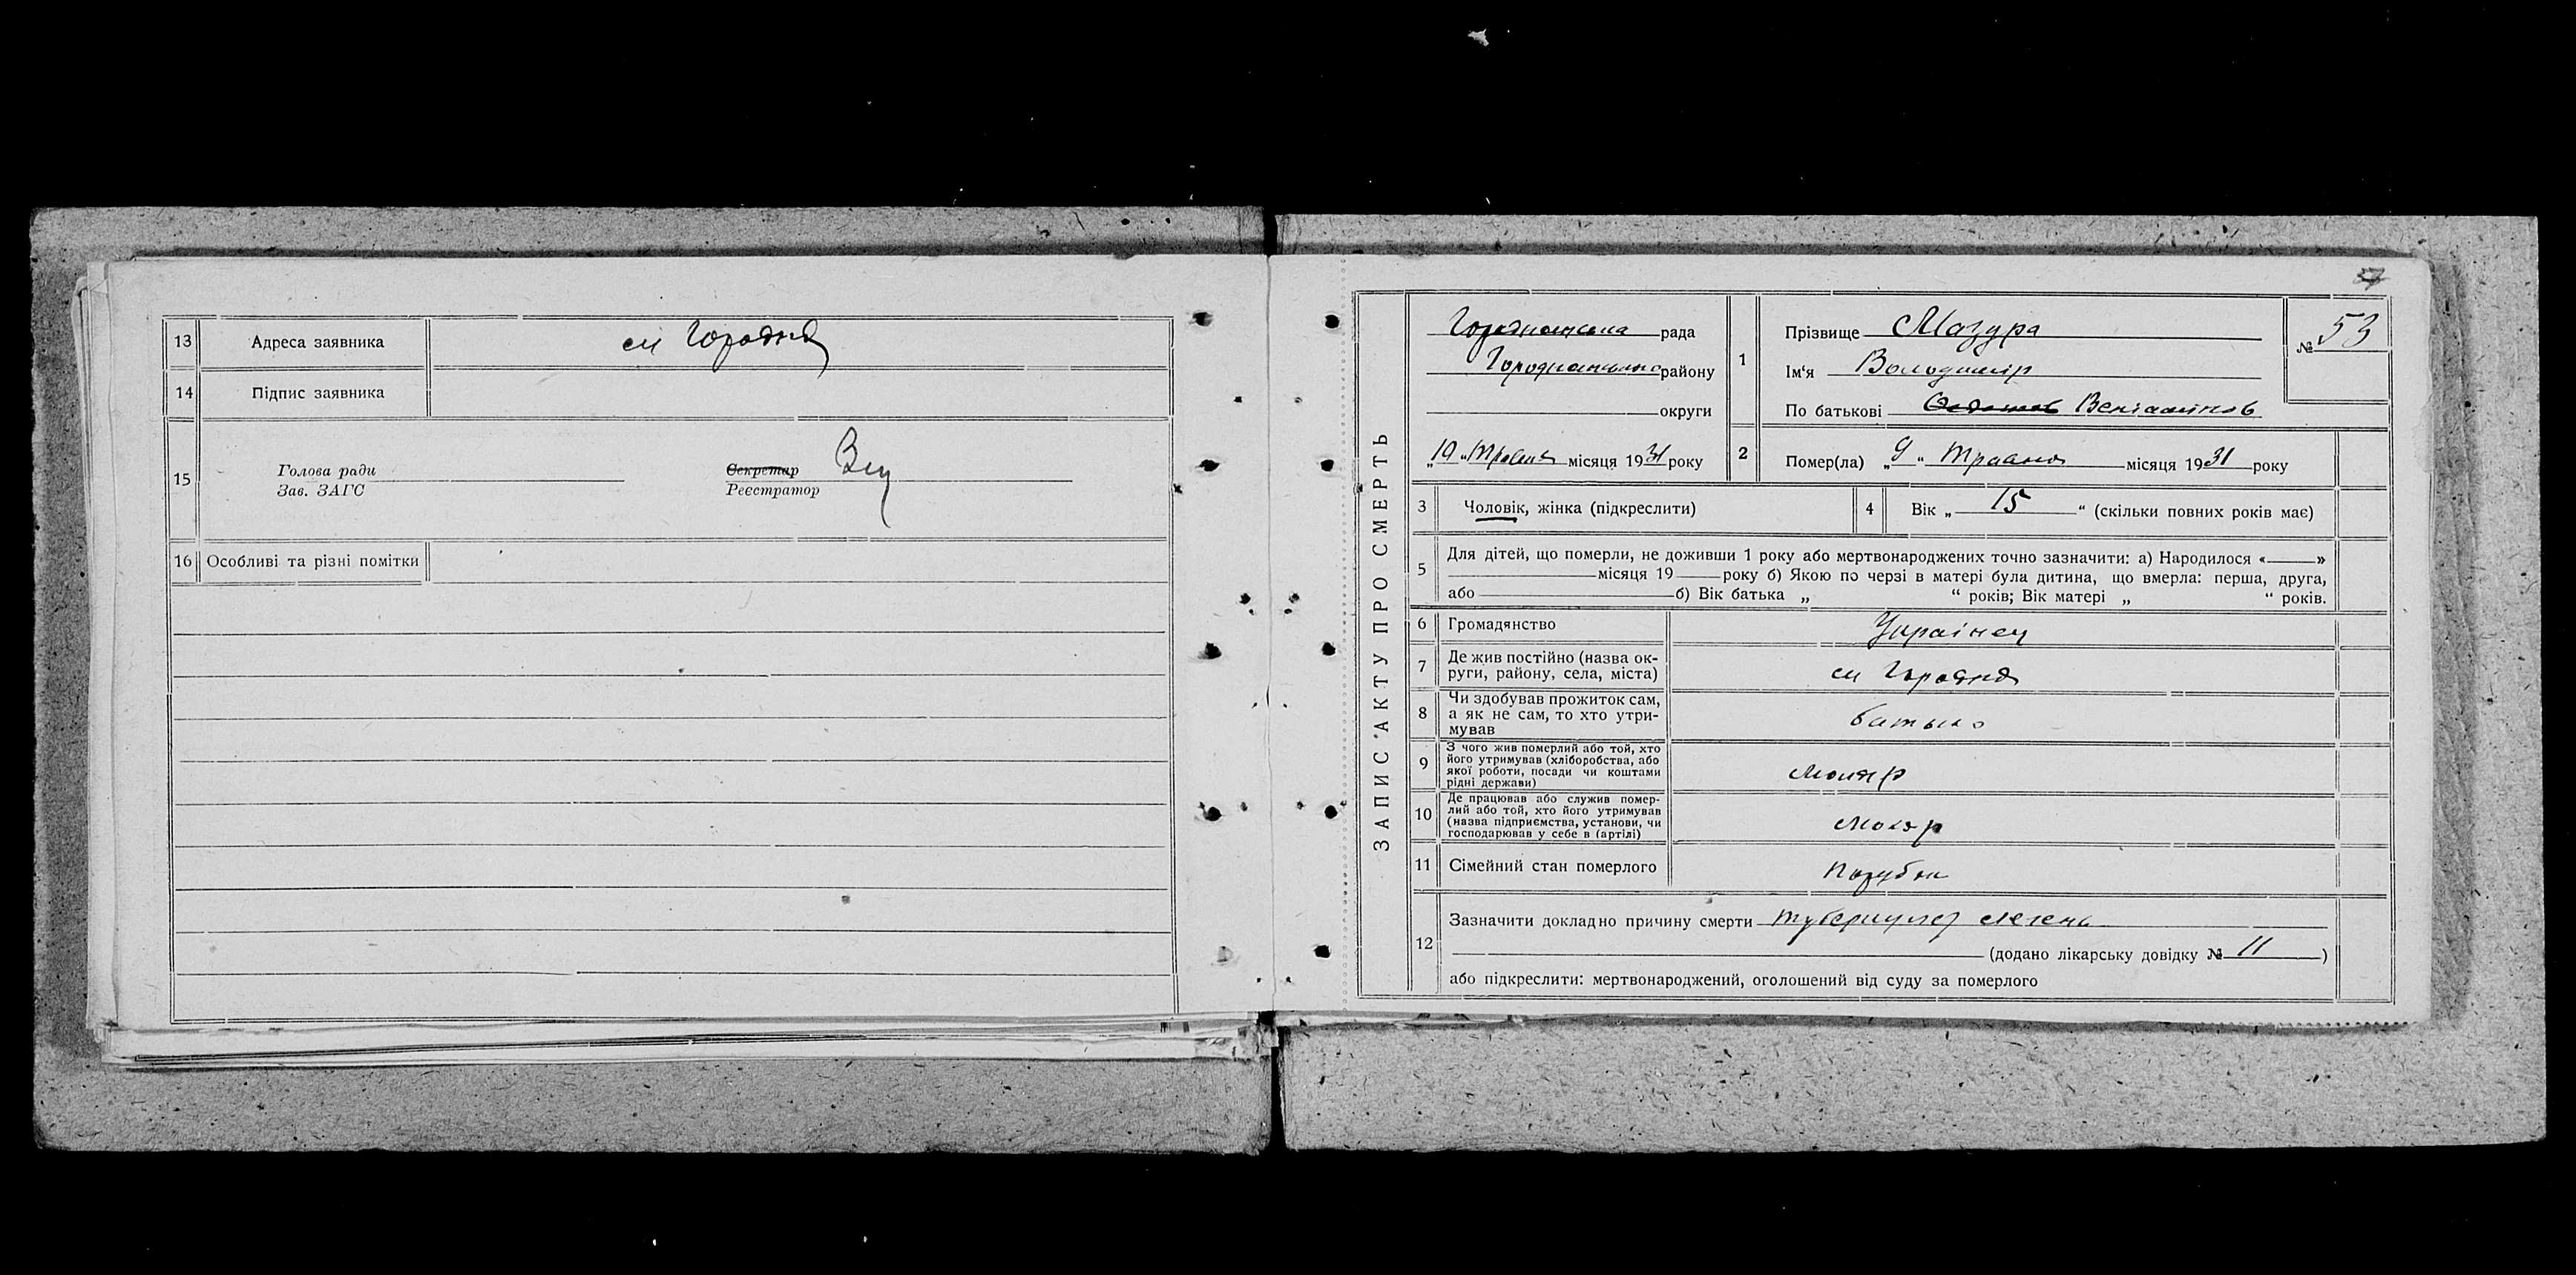 13 Адреса заявника м Городня
14 Підпис заявника
15 Голова ради
Зав. ЗАГС
Секретар
Реєстратор
16 Особливі та різні помітки
ЗАПИС АКТУ ПРО СМЕРТЬ
Городнянська рада
Городнянського району
округи
„10 “ Травня місяця 1931 року
1 Прізвище Мазура
Ім‘я Володимір
По батькові Веніамінов
№ 53
2 Помер(ла) „9 “ Травня місяця 1931 року
3 Чоловік, жінка (підкреслити)
4 Вік „ 15 “ (скільки повних років має)
5 Для дітей, що померли, не доживши 1 року або мертвонароджених точно зазначити: а) Народилося « »
місяця 19 року б) Якою по черзі в матері була дитина, що вмерла: перша, друга,
або б) Вік батька „ “ років; Вік матері „ “ років.
6 Громадянство Українец
7 Де жив постійно (назва ок-
руги, району, села, міста) м Городня
8 Чи здобував прожиток сам,
а як не сам, то хто утри-
мував батько
9 З чого жив померлий або той, хто
його утримував (хліборобства, або
якої роботи, посади чи коштами
рідні держави) Маляр
10 Де працював або служив помер-
лий або той, хто його утримував
(назва підприємства, установи, чи
господарював у себе в (артілі) Маляр
11 Сімейний стан померлого Парубок
12 Зазначити докладно причину смерти туберкульоз легень
(додано лікарську довідку № 11 )
або підкреслити: мертвонароджений, оголошений від суду за померлого